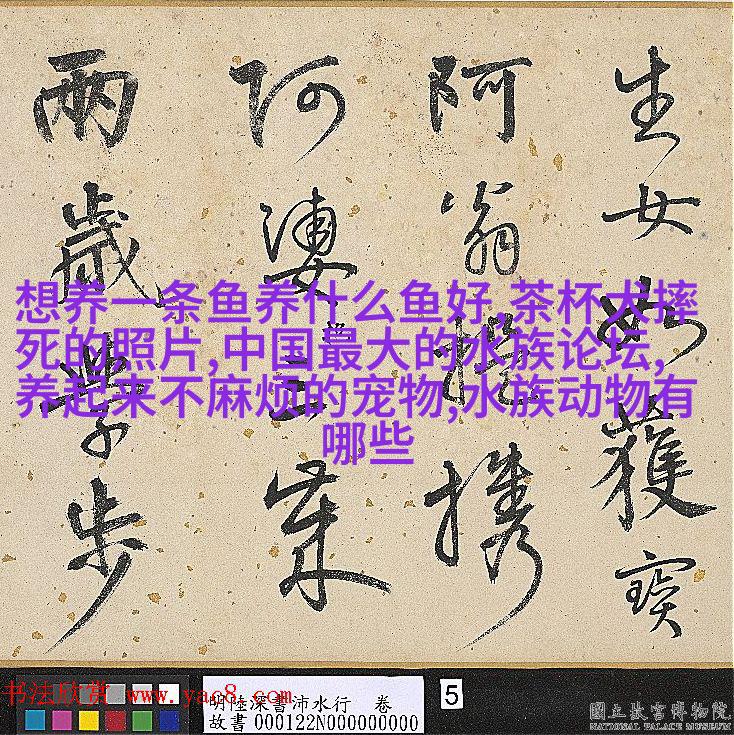 生女如獲寶
阿翁携
阿婆
兩歲學步
想养一条鱼养什么鱼好,茶杯犬摔
死的照片,中国最大的水族论坛,
养起来不麻烦的宠物,水族动物有
哪些
书法欣赏 www.yac8.com
明陸深書沛水行 卷
故書 000122N000000000
5
國立故宮博物院
NATIONAL PALACE MUSEUM